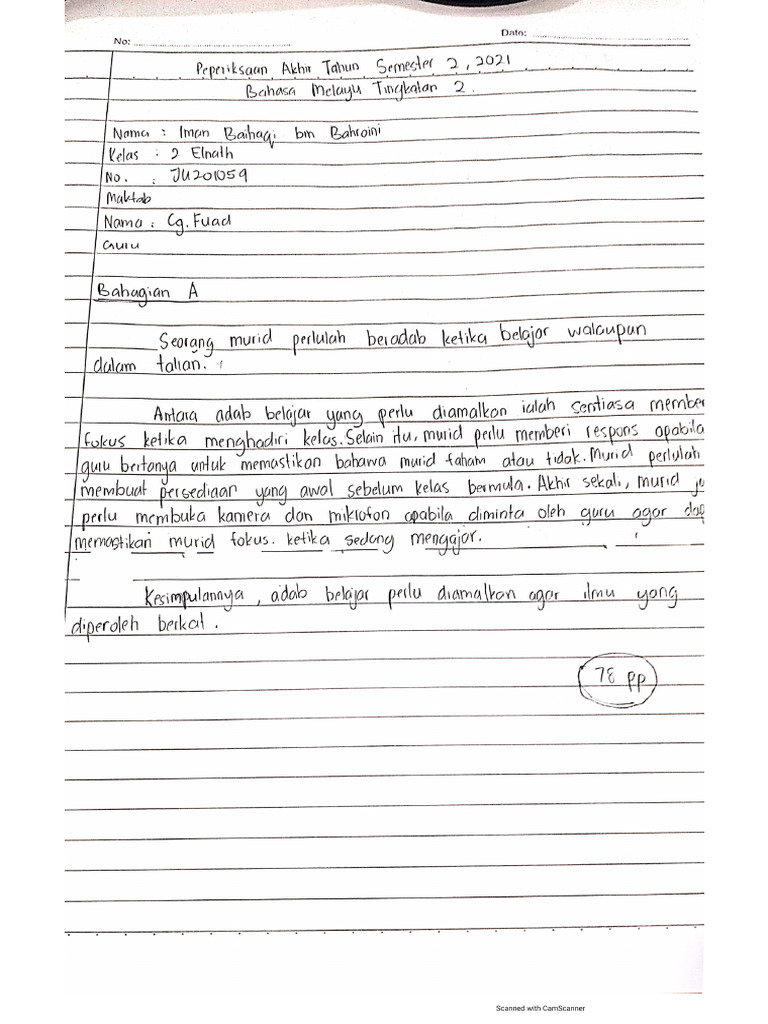 No:
Date:
Peperiksaan Akhir Tahun Semester 2, 2021
Bahasa Melayu Tingkatan 2.
Nama : Iman Baihaqi bin Bahroini
Kelas : 2 Elnath
No. : JU201059
Maktab
Nama : Cg. Fuad
Guru
Bahagian A
Seorang murid perlulah beradab ketika belajar walaupun
dalam talian.
Antara adab belajar yang perlu diamalkan ialah sentiasa member
fokus ketika menghadiri kelas. Selain itu, murid perlu memberi respons apabila
guru bertanya untuk memastikan bahawa murid faham atau tidak. Murid perlulah
membuat persediaan yang awal sebelum kelas bermula. Akhir sekali, murid ju
perlu membuka kamera dan mikrofon apabila diminta oleh guru agar dap
memastikan murid fokus. ketika sedang mengajar.
Kesimpulannya, adab belajar perlu diamalkan agar ilmu yang
diperoleh berkat.
78 pp
Scanned with CamScanner